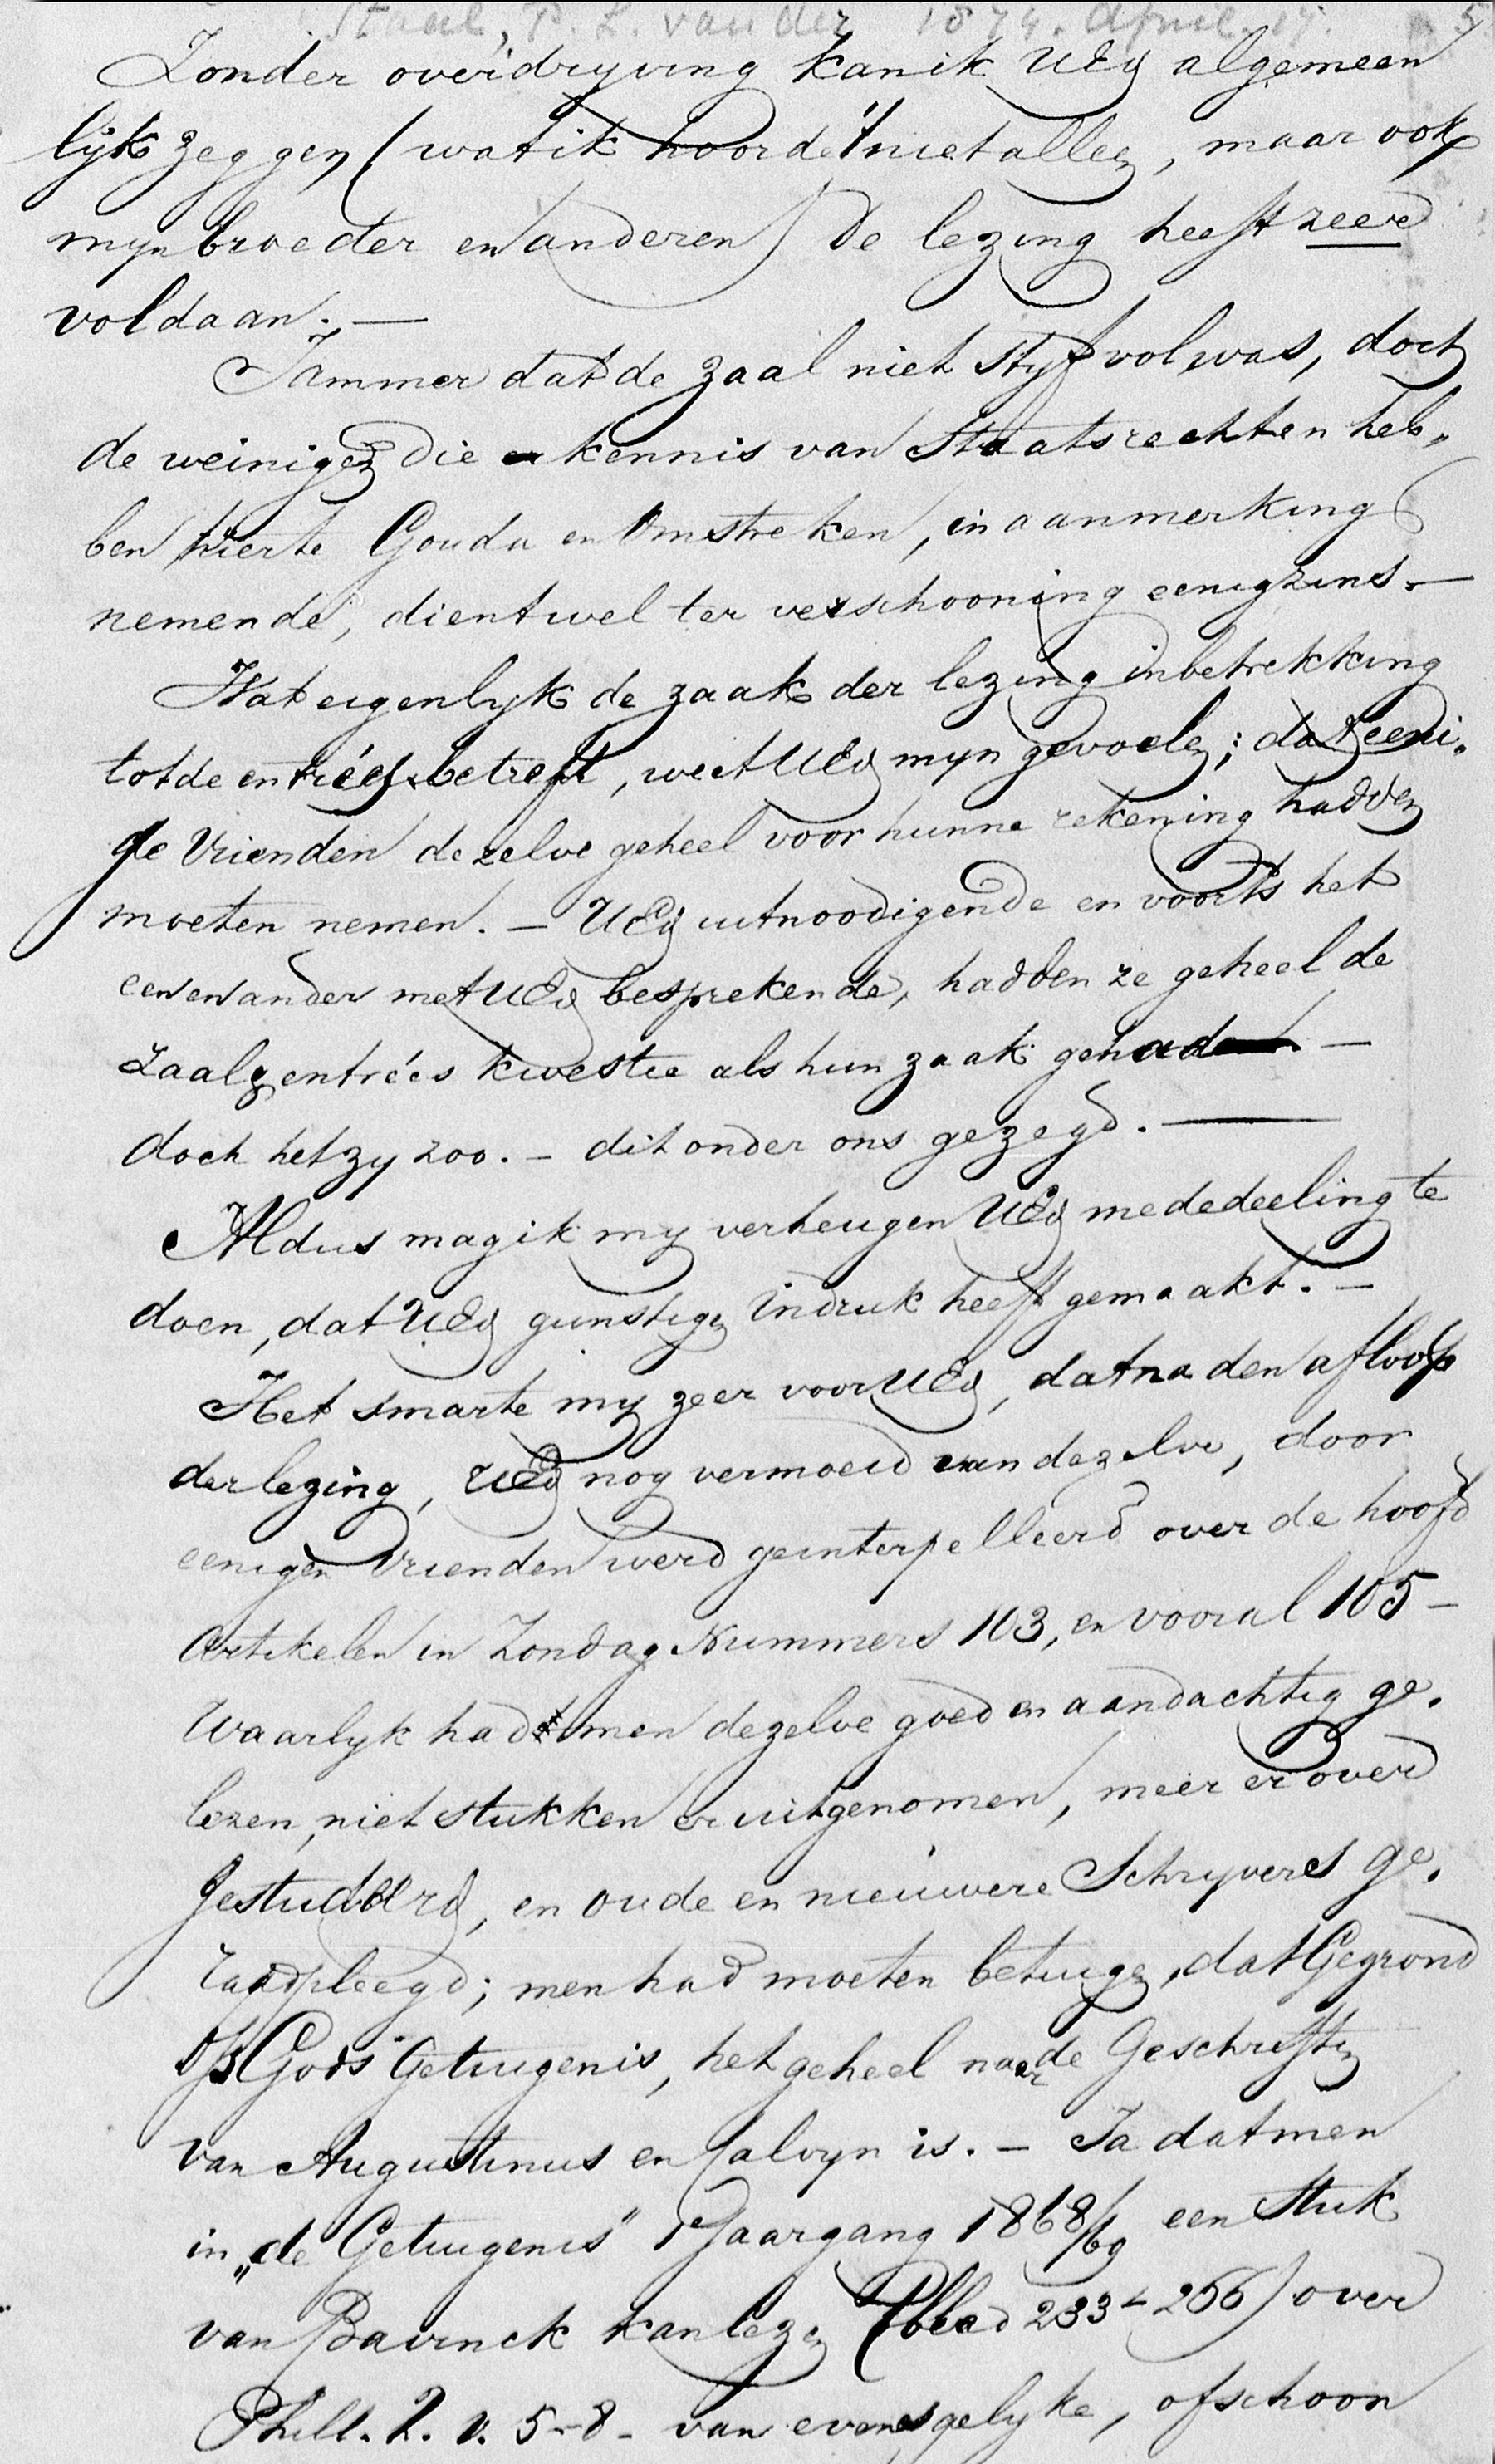 Staal, P. L. van der 1874. April. 17. 5
Zonder overdryving kan ik UEd algemeen
lijk zeggen (wat ik hoorde 't niet alleen, maar ook
myn broeder en anderen) de lezing heeft zeer
voldaan. —
Jammer dat de zaal niet styf vol was, doch
de weinigen die kennis van Staatsrechten heb„
ben hier te Gouda en Omstreken, in aanmerking
nemende, dient wel ter verschooning eenigzins. —
Wat eigenlyk de zaak der lezing in betrekking
tot de entrées betreft, weet UEd myn gevoelen; dat eeni„
ge Vrienden dezelve geheel voor hunne rekening hadden
moeten nemen. — UEd uitnoodigende en voorts het
een en ander met UEd besprekende, hadden ze geheel de
Zaal & entrées kwestie als hun zaak gehad —
doch het zy zoo. — dit onder ons gezegd. —
Aldus mag ik my verheugen UEd mededeeling te
doen, dat UEd gunstigen indruk heeft gemaakt. —
Het smarte my zeer voor UEd, dat na den afloop
der lezing, UEd nog vermoeid van dezelve, door
eenigen Vrienden werd geinterpelleerd over de hoofd
Artikelen in Zondag Nummers 103, en vooral 105 —
Waarlyk had men dezelve goed en aandachtig ge„
lezen, niet stukken er uitgenomen, meer er over
gestudeerd, en oude en nieuwere Schryvers ge„
raadpleegd; men had moeten betuigen, dat Gegrond
op Gods Getuigenis, het geheel naar de Geschriften
van Augustinus en Calvyn is. — Ja dat men
in „de Getuigenis" Jaargang 1868/69 een Stuk
van Bavinck kan lezen (blad 233 - 266) over
Phill. 2. v. 5-8 - van evenes gelyke, ofschoon